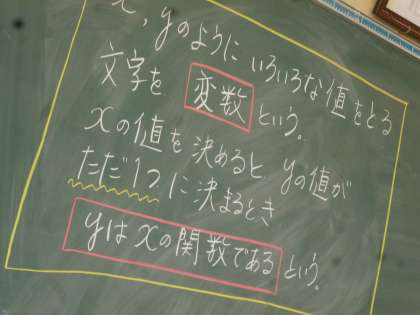 x, yのように いろいろな値をとる
文字を 変数 という。
xの値を決めると、yの値が
ただ1つに決まるとき
yはxの関数である という。